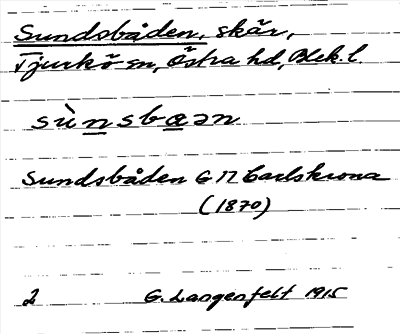 Sundsbåden, skär,
Tjurkö sn, Östra hd, Blek. l.
sùnsbaən
Sundsbåden G Π Carlskrona
(1870)
2 G. Langenfelt 1915